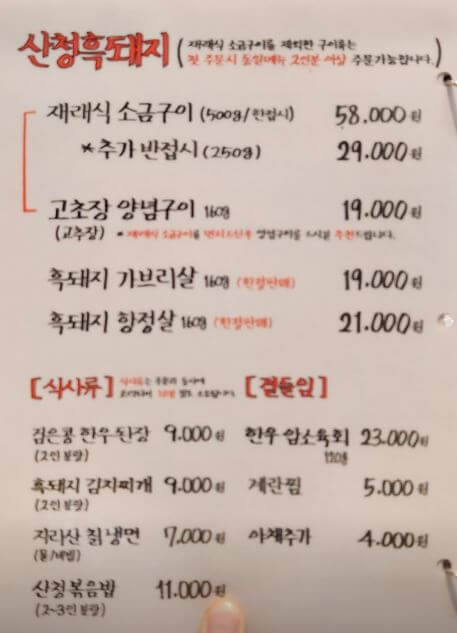 산청흑돼지 (재래식 소금구이를 제외한 구이류는
첫 주문시 동일메뉴 2인분 이상 주문가능합니다.)
재래식 소금구이 (500g/한접시) 58.000원
*추가 반접시 (250g) 29.000원
고초장 양념구이 160g 19.000원
(고추장) * 재래식 소금구이를 먼저 드신후 양념구이를 드시길 추천드립니다.
흑돼지 가브리살 160g (한정판매) 19.000원
흑돼지 항정살 160g (한정판매) 21.000원
[식사류] 식사류는 주문과 동시에
조리되어 10분 정도 소요됩니다.
검은콩 한우된장 9.000원
(2인분량)
흑돼지 김치찌개 9.000원
(2인분량)
지리산 칡냉면 7.000원
(물/비빔)
산청볶음밥 11.000원
(2~3인분량)
[곁들임]
한우 암소육회 23.000원
120g
계란찜 5.000원
야채추가 4.000원